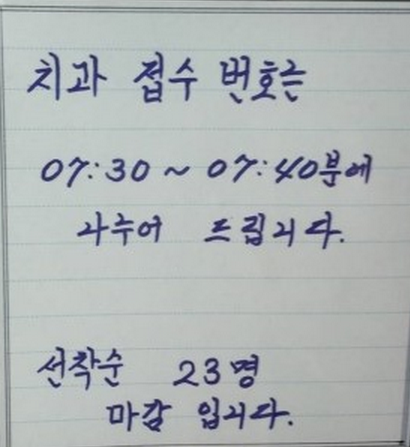 치과 접수 번호는
07:30 ~ 07:40분에
나누어 드립니다.
선착순 23명
마감 입니다.